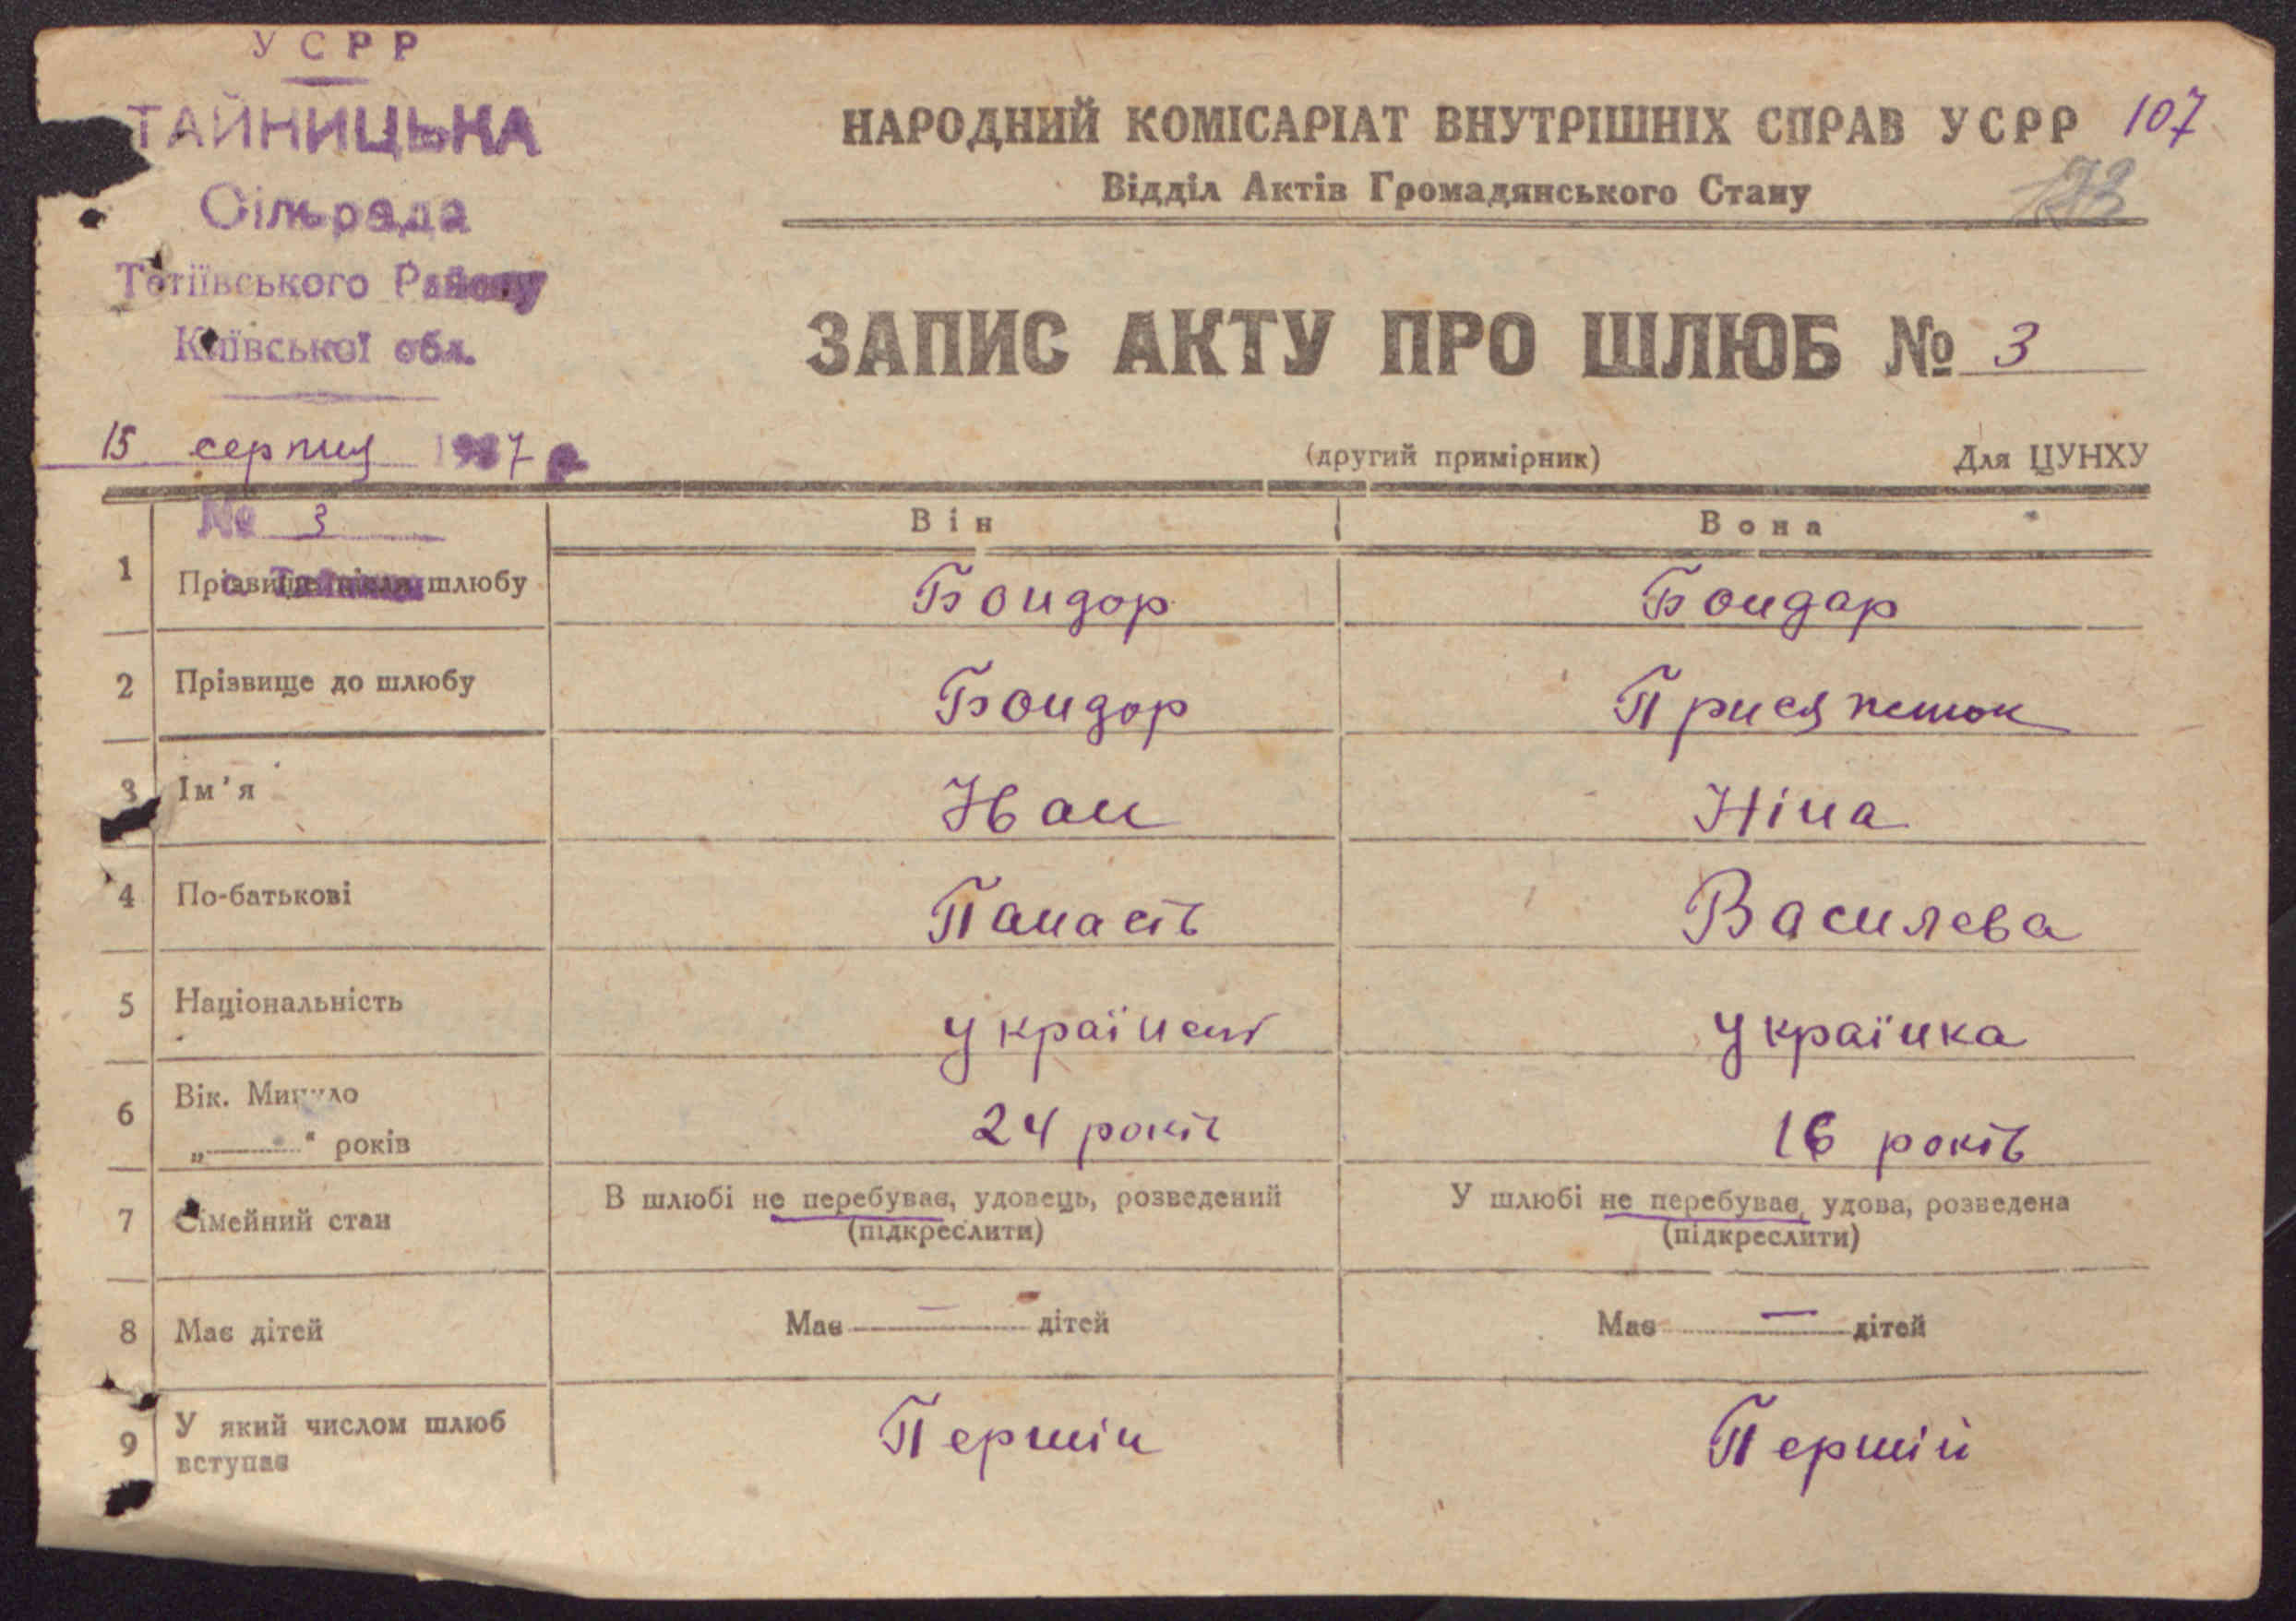 УСРР
ТАЙНИЦЬКА
Сільрада
Тетіївського Району
Київської обл.
15 серпня 1937 р.
№ 3
НАРОДНИЙ КОМІСАРІАТ ВНУТРІШНІХ СПРАВ УСРР 107
Відділ Актів Громадянського Стану
ЗАПИС АКТУ ПРО ШЛЮБ № 3
(другий примірник) Для ЦУНХУ
Він Вона
1 Прізвище після шлюбу Бондор Бондар
2 Прізвище до шлюбу Бондор
3 Ім'я Иван Ніна
4 По-батькові Панасів Василева
5 Національність українец українка
6 Вік. Минуло
„ “ років 24 років 16 років
7 Сімейний стан В шлюбі не перебував, удовець, розведений У шлюбі не перебуває, удова, розведена
(підкреслити) (підкреслити)
8 Має дітей Має — дітей Має — дітей
9 У який числом шлюб Першій Першій
вступає